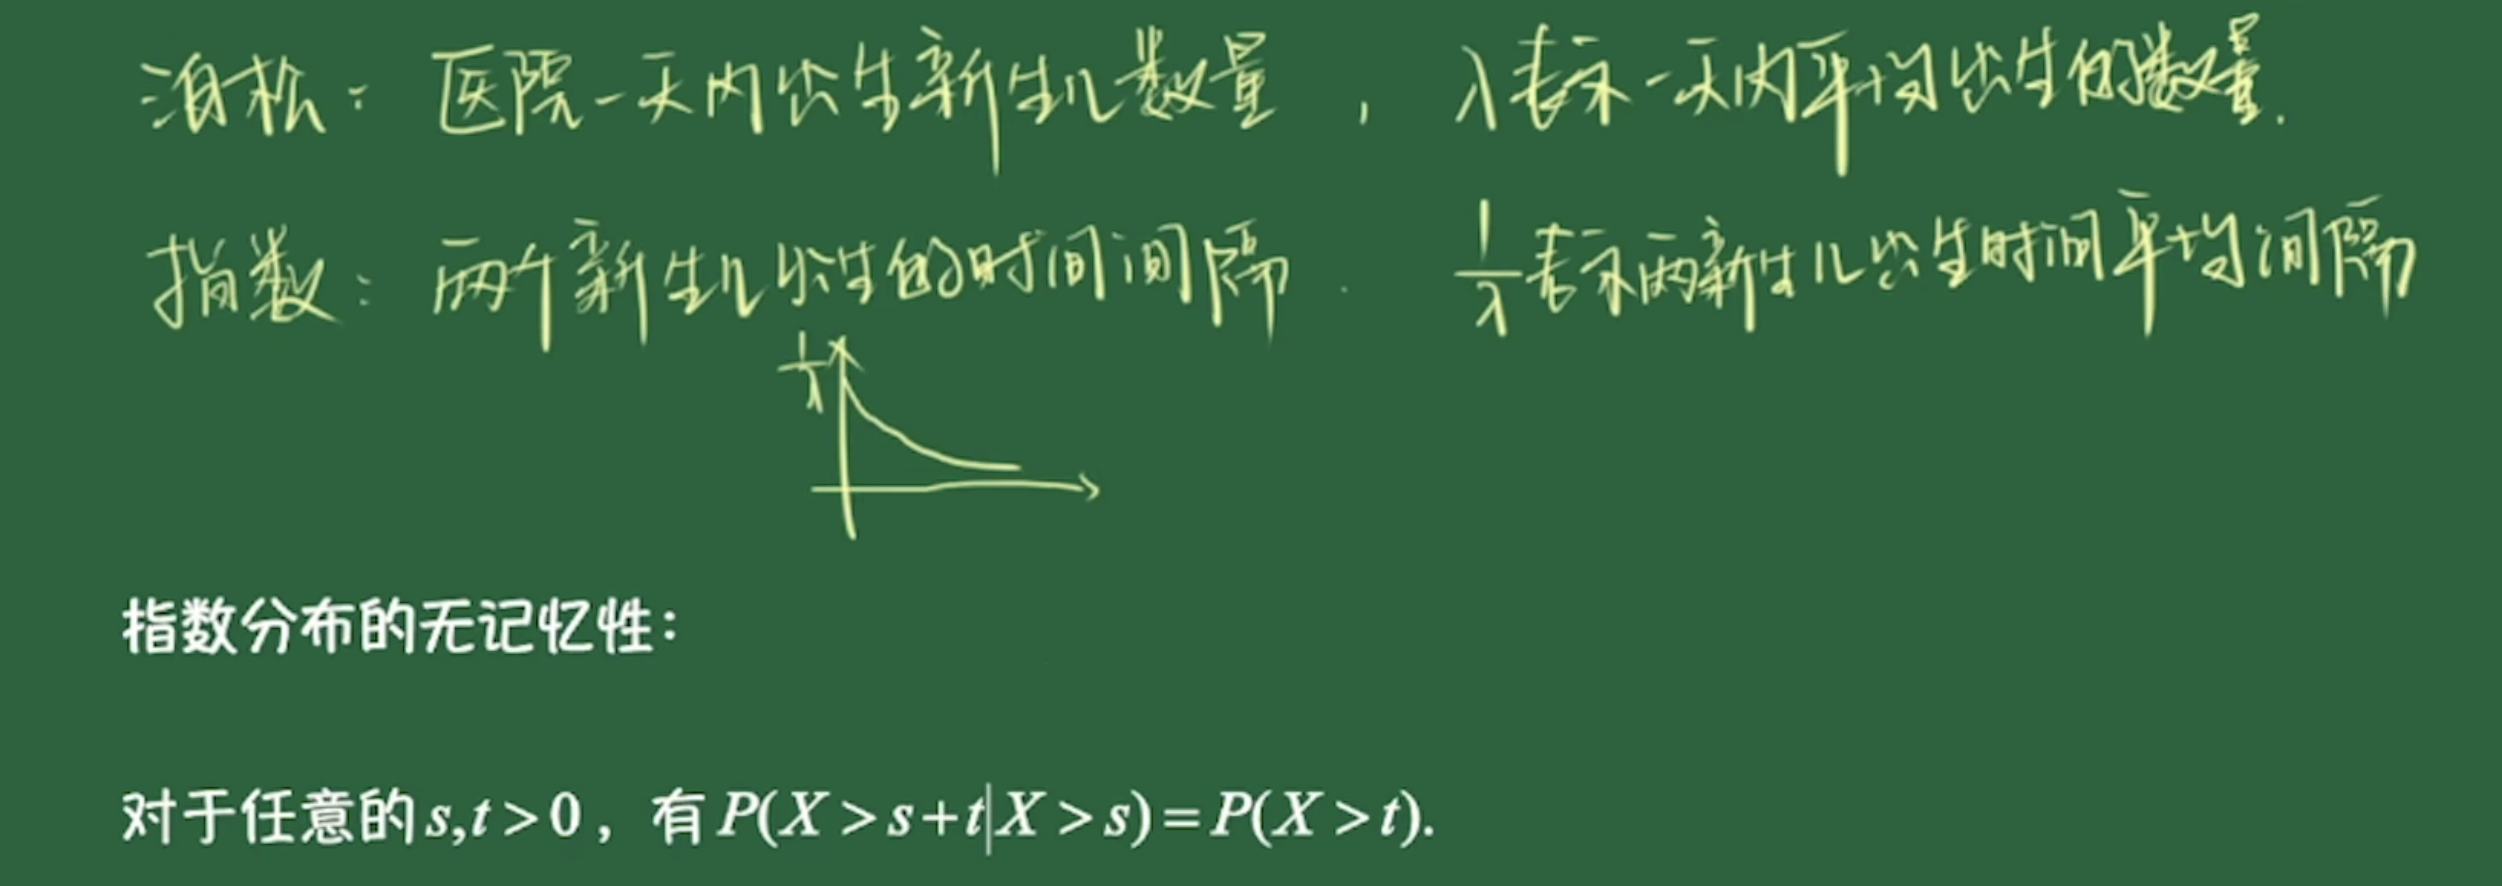 泊松：医院一天内出生新生儿数量，λ表示一天内平均出生的数量.
指数：两个新生儿出生的时间间隔. 1/λ表示两新生儿出生时间平均间隔
1/λ
指数分布的无记忆性：
对于任意的s,t>0，有P(X>s+t|X>s)=P(X>t).